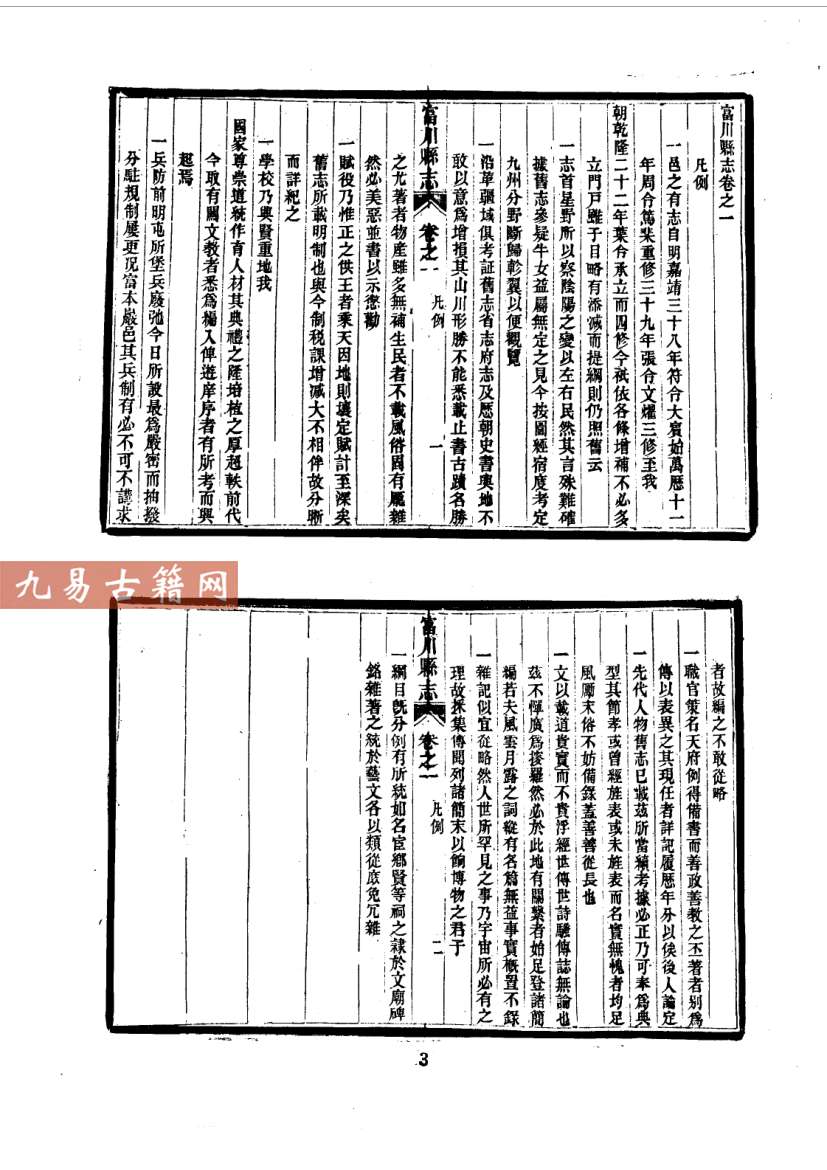 富川縣志卷之一
凡例
一邑之有志自明嘉靖三十八年符令大賓始萬曆十一
年周令篤棐重修三十九年張令文燿三修至我
朝乾隆二十二年葉令承立而四修今祇依各條增補不必多
立門戶雖于目略有添減而提綱則仍照舊云
一志首星野所以察陰陽之變以左右民然其言殊難確
據舊志參疑牛女益屬無定之見今按圖經宿度考定
九州分野斷歸軫翼以便觀覽
一沿革疆域俱考証舊志省志府志及歷朝史書輿地不
敢以意為增損其山川形勝不能悉載止書古蹟名勝
富川縣志 卷之一 凡例 一
之尤著者物產雖多無補生民者不載風俗固有厖雜
然必美惡並書以示懲勸
一賦役乃惟正之供王者乘天因地則壤定賦計至深矣
舊志所載明制也與今制稅課增減大不相侔故分晰
而詳紀之
一學校乃興賢重地我
國家尊崇道統作育人材其典禮之隆培植之厚超軼前代
今取有關文教者悉為編入俾遊庠序者有所考而興
起焉
一兵防前明屯所堡兵廢弛今日所設最為嚴密而抽撥
分駐規制屢更况富本巖邑其兵制有必不可不講求
者故編之不敢從略
一職官策名天府例得備書而善政善教之丕著者別為
傳以表異之其現任者詳記履歷年分以俟後人論定
一先代人物舊志已載茲所當續考據必正乃可奉為典
型其節孝或曾經旌表或未旌表而名實無愧者均足
風勵末俗不妨備錄蓋善善從長也
一文以載道貴實而不貴浮經世傳世詩騷傳誌無論也
茲不憚廣為搜羅然必於此地有關繫者始足登諸簡
編若夫風雲月露之詞縱有名篇無益事實概置不錄
一雜記似宜從略然人世所罕見之事乃宇宙所必有之
理故採集傳聞列諸簡末以餉博物之君子
富川縣志 卷之一 凡例 二
一綱目既分例有所統如名宦鄉賢等祠之隸於文廟碑
銘雜著之統於藝文各以類從庶免冗雜
九易古籍网
3